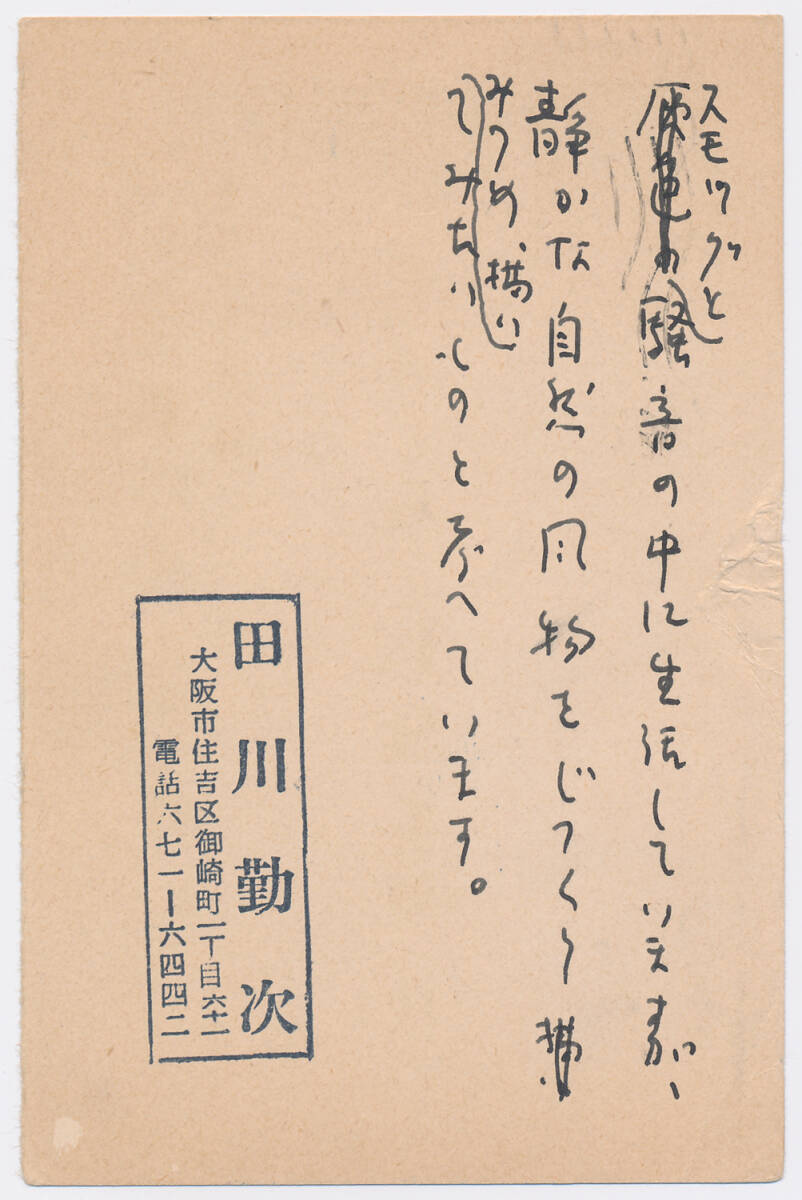 スモツグと
騒音の中に生活していますが、
静かな自然の風物をじつくり
みつめ、描い
てみたいものと考へています。
田川勤次
大阪市住吉区御崎町一丁目六十一
電話六七一ー六四四二